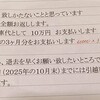 致しかたないことと思っています
全額お返します。
車代として 10万円 お支払いします
の3ヶ月分をお支払いします
、退去を早くお願い致したいところで
(2025年の10月末)までには引越